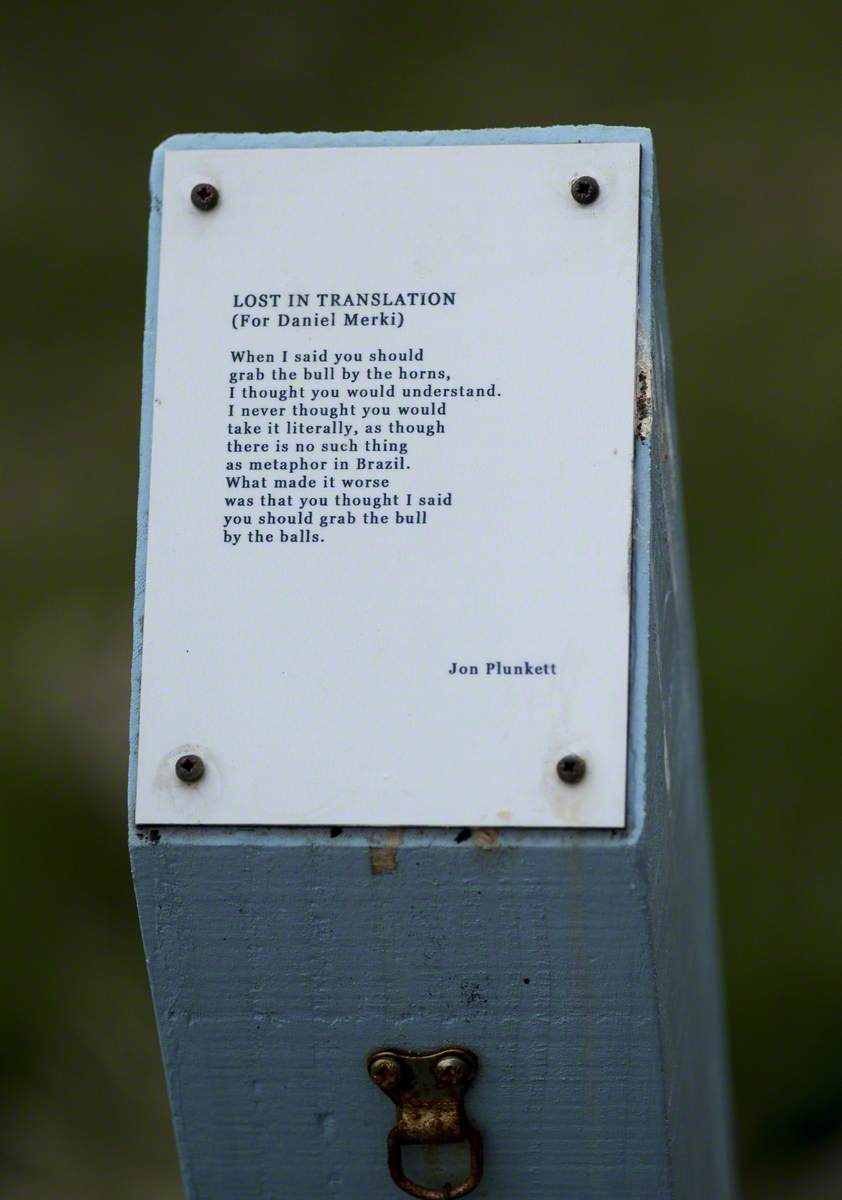 LOST IN TRANSLATION
(For Daniel Merki)
When I said you should
grab the bull by the horns,
I thought you would understand.
I never thought you would
take it literally, as though
there is no such thing
as metaphor in Brazil.
What made it worse
was that you thought I said
you should grab the bull
by the balls.
Jon Plunkett